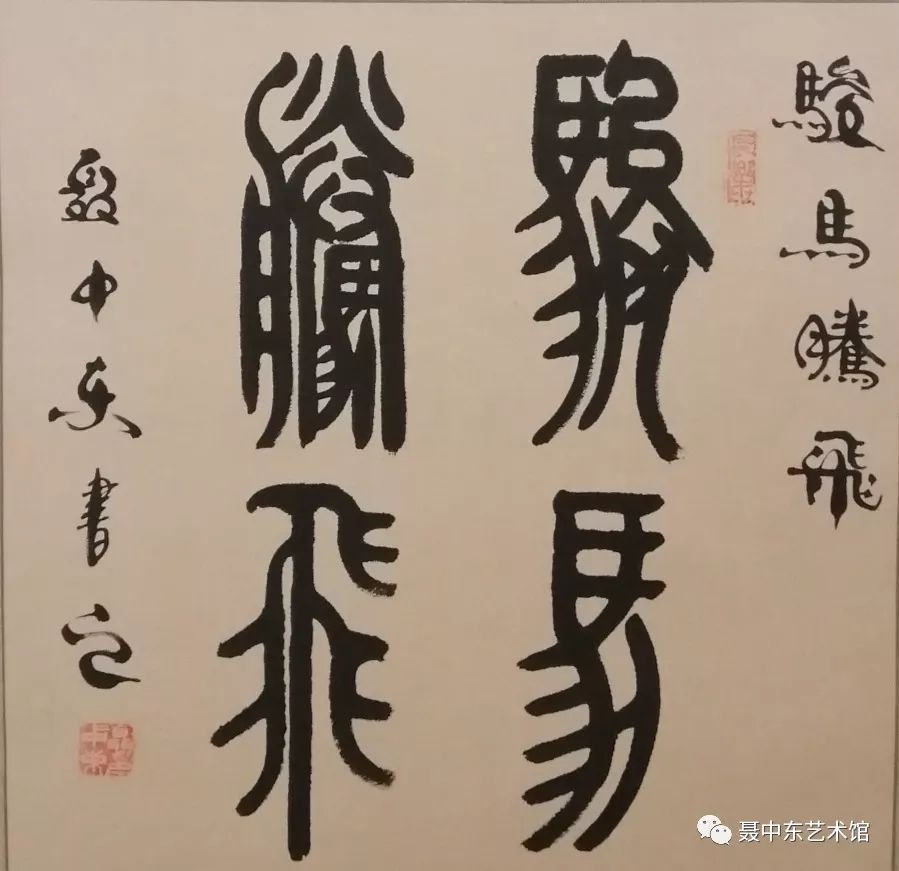 駿馬騰飛
駿馬
騰飛
聶中东書
聂中东艺术馆